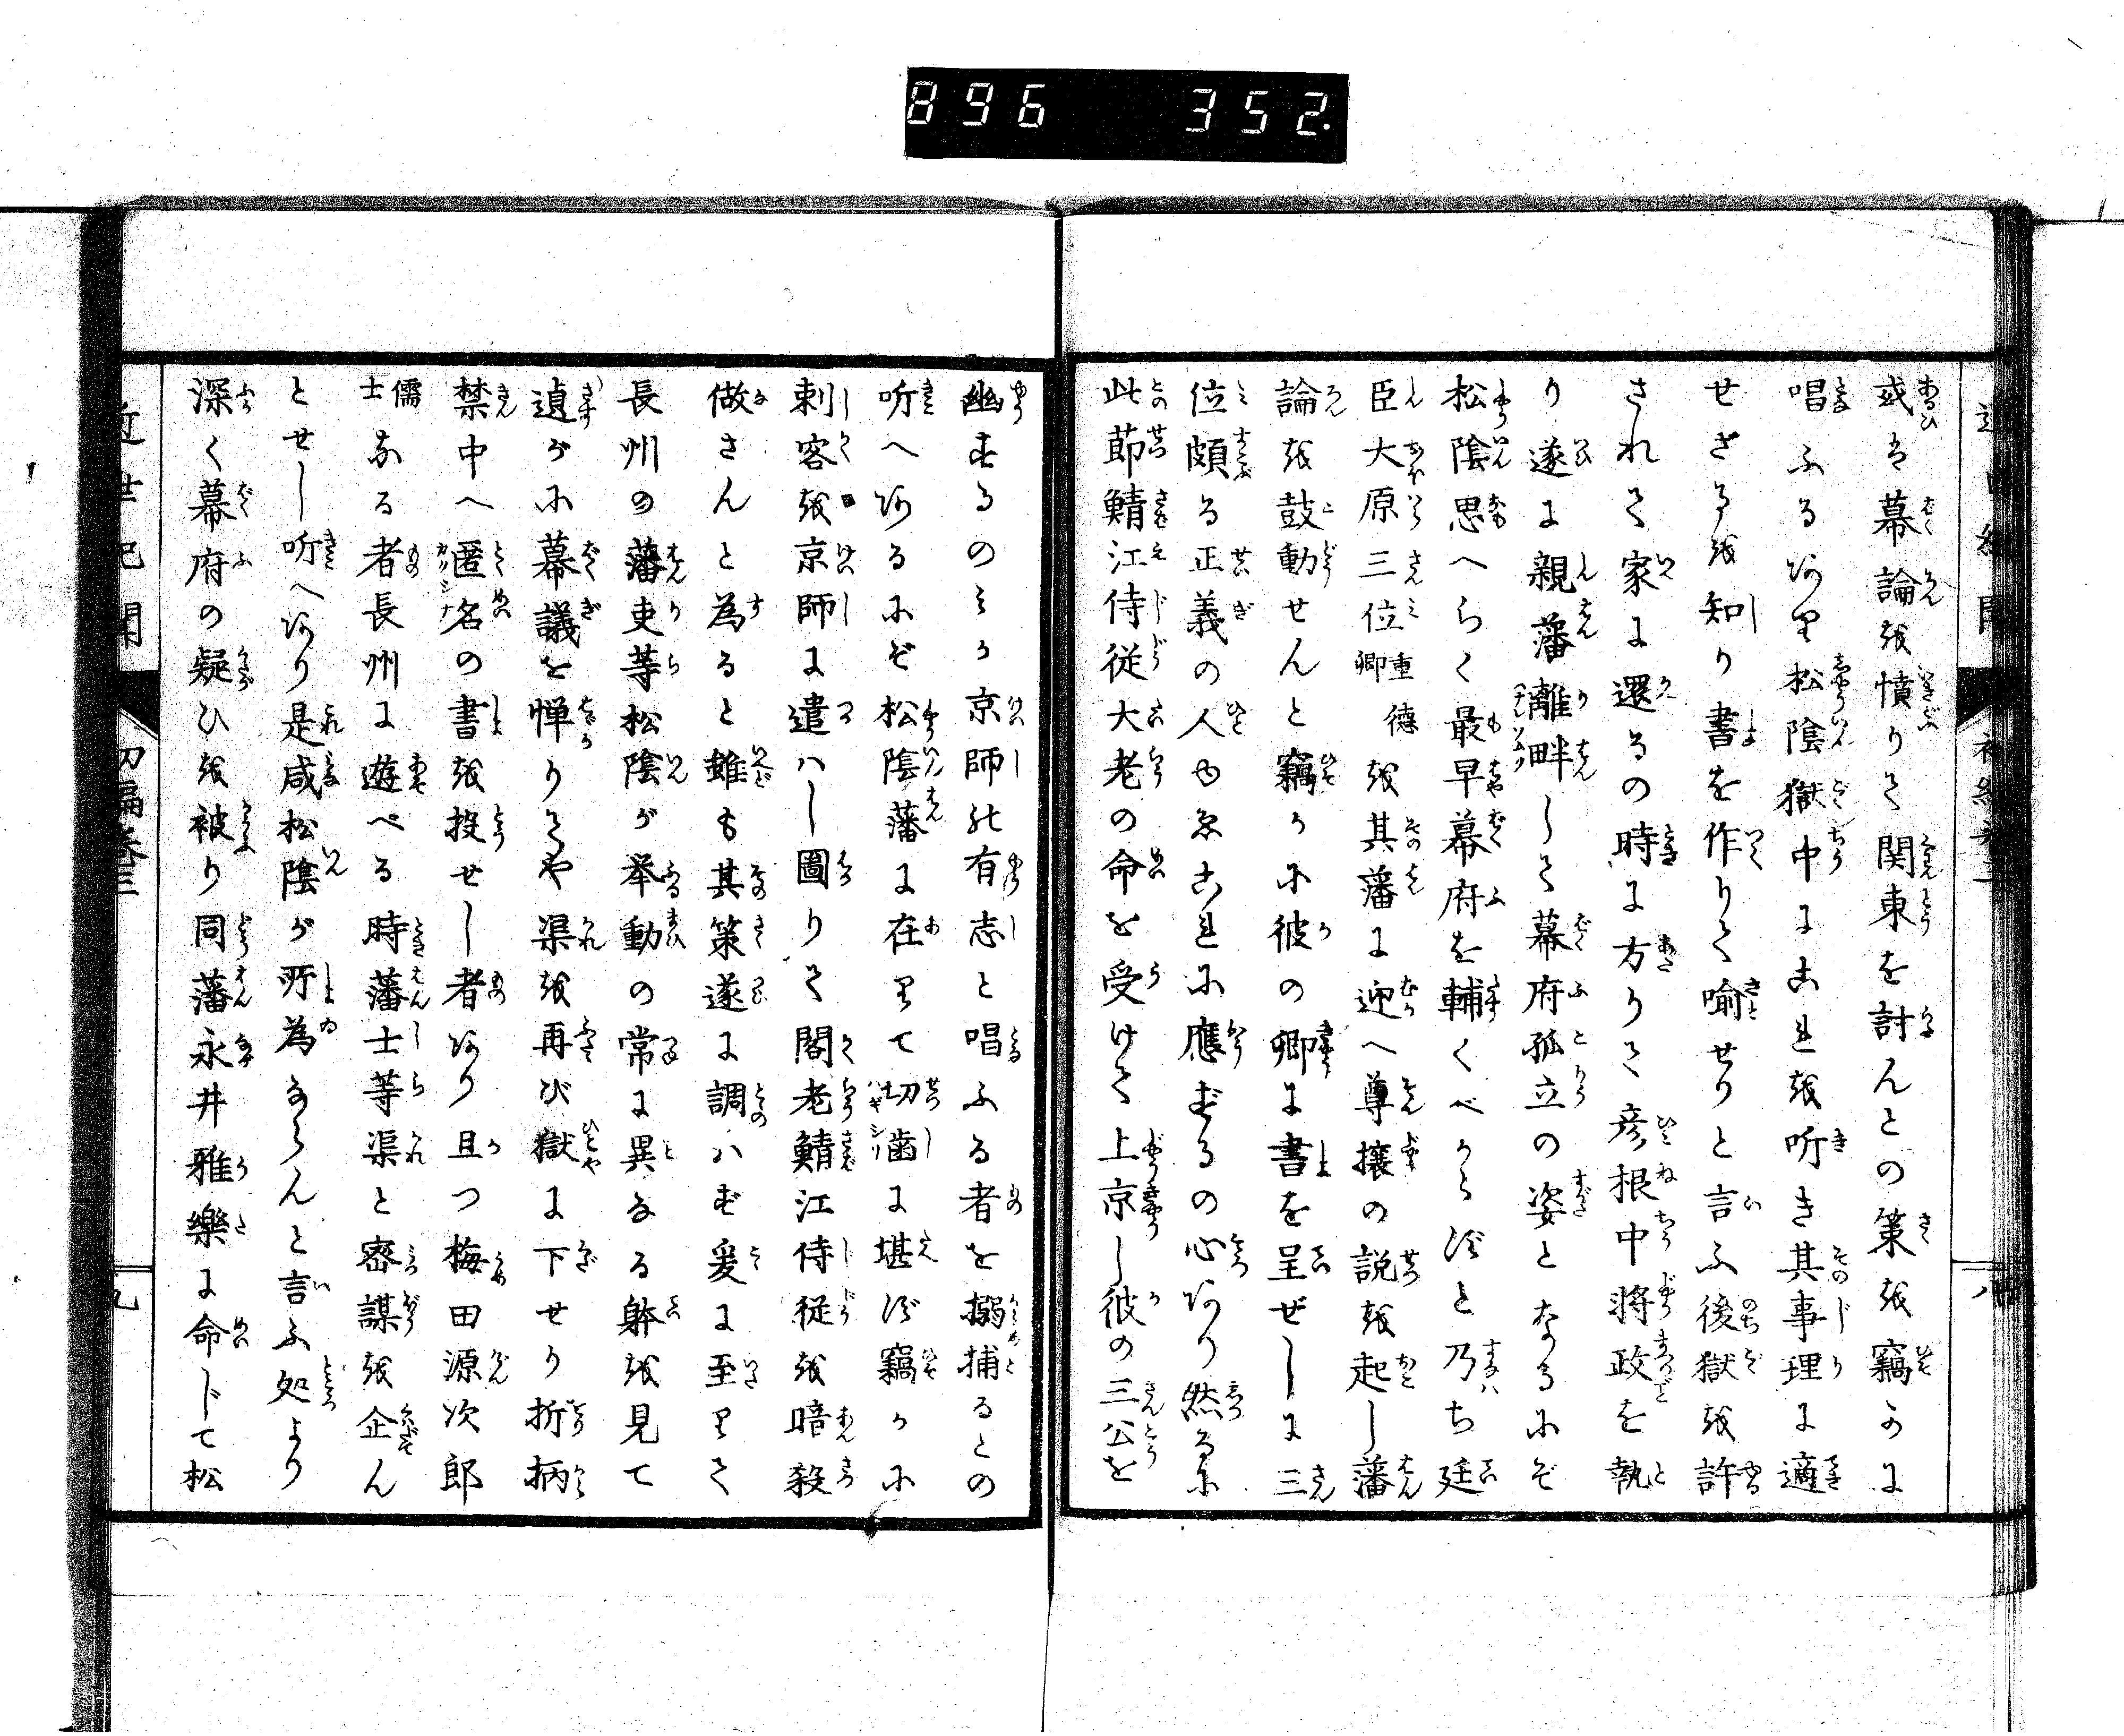 896 352.
或は幕論を憤りて関東を討んとの策を竊かに
唱ふるあり松陰獄中にこれを听き其事理に適
せざるを知り書を作りて喻せりと言ふ後獄を許
されて家に還るの時に方りて彦根中将政を執
り遂に親藩離畔して幕府孤立の姿となるにぞ
松陰思へらく最早幕府を輔くべからずと乃ち廷
臣大原三位重德卿を其藩に迎へ尊攘の説を起し藩
論を鼓動せんと竊かに彼の卿に書を呈ぜしに三
位頗る正義の人ゆゑこれに應ずるの心あり然るに
此節鯖江侍従大老の命を受けて上京し彼の三公を
幽するのみか京師の有志と唱ふる者を搦捕るとの
听へあるにぞ松陰藩に在りて切歯に堪ず竊かに
刺客を京師に遣ハし圖りて閣老鯖江侍従を暗殺
做さんと為ると雖も其策遂に調ハず爰に至りて
長州の藩吏等松陰が挙動の常に異なる躰を見て
遉がに幕議を憚りてや渠を再び獄に下せり折柄
禁中へ匿名の書を投せし者あり且つ梅田源次郎
儒士なる者長州に遊べる時藩士等渠と密謀を企ん
とせし听へあり是咸松陰が所為ならんと言ふ処より
深く幕府の疑ひを被り同藩永井雅樂に命じて松
近世紀聞 初編巻三 九